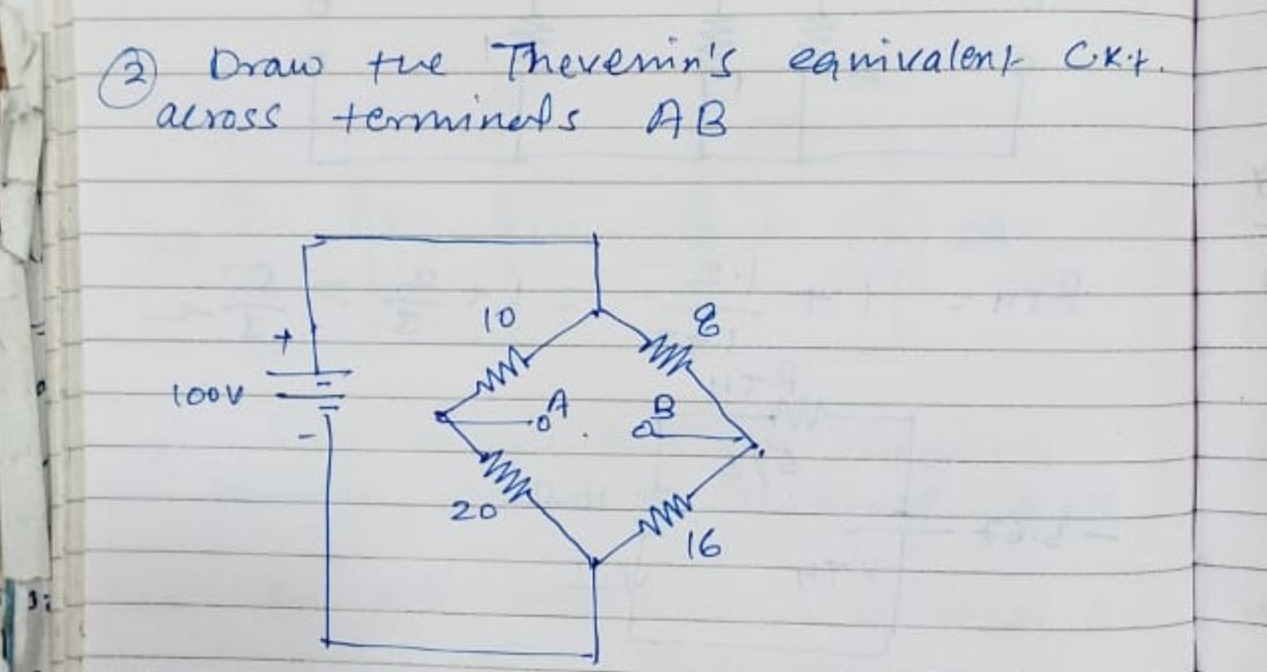 2 Draw the Thevenin's equivalent C.K.t.
across terminals AB
10
8
+
100V
A
B
-
20
16